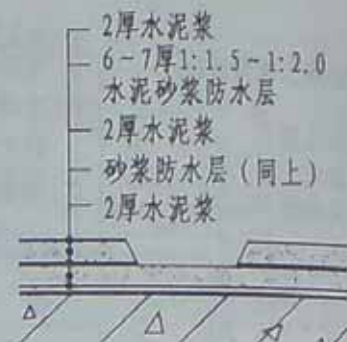 2厚水泥浆
6~7厚1:1.5~1:2.0
水泥砂浆防水层
2厚水泥浆
砂浆防水层（同上）
2厚水泥浆